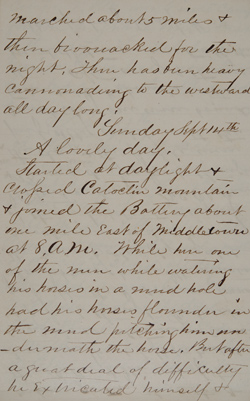 marched about 5 miles &
then bivouacked for the
night. There has been heavy
cannonading to the westward
all day long.
Sunday Sept 14th
A lovely day.
Started at daylight &
Crossed Catoctin Mountain
& joined the Battery about
one mile East of Middletown
at 8 A.M. While here one
of the men while watering
his horses in a mud hole
had his horses flounder in
the mud pitching him un
-derneath the horse. But after
a great deal of difficulty
he Extricated himself &